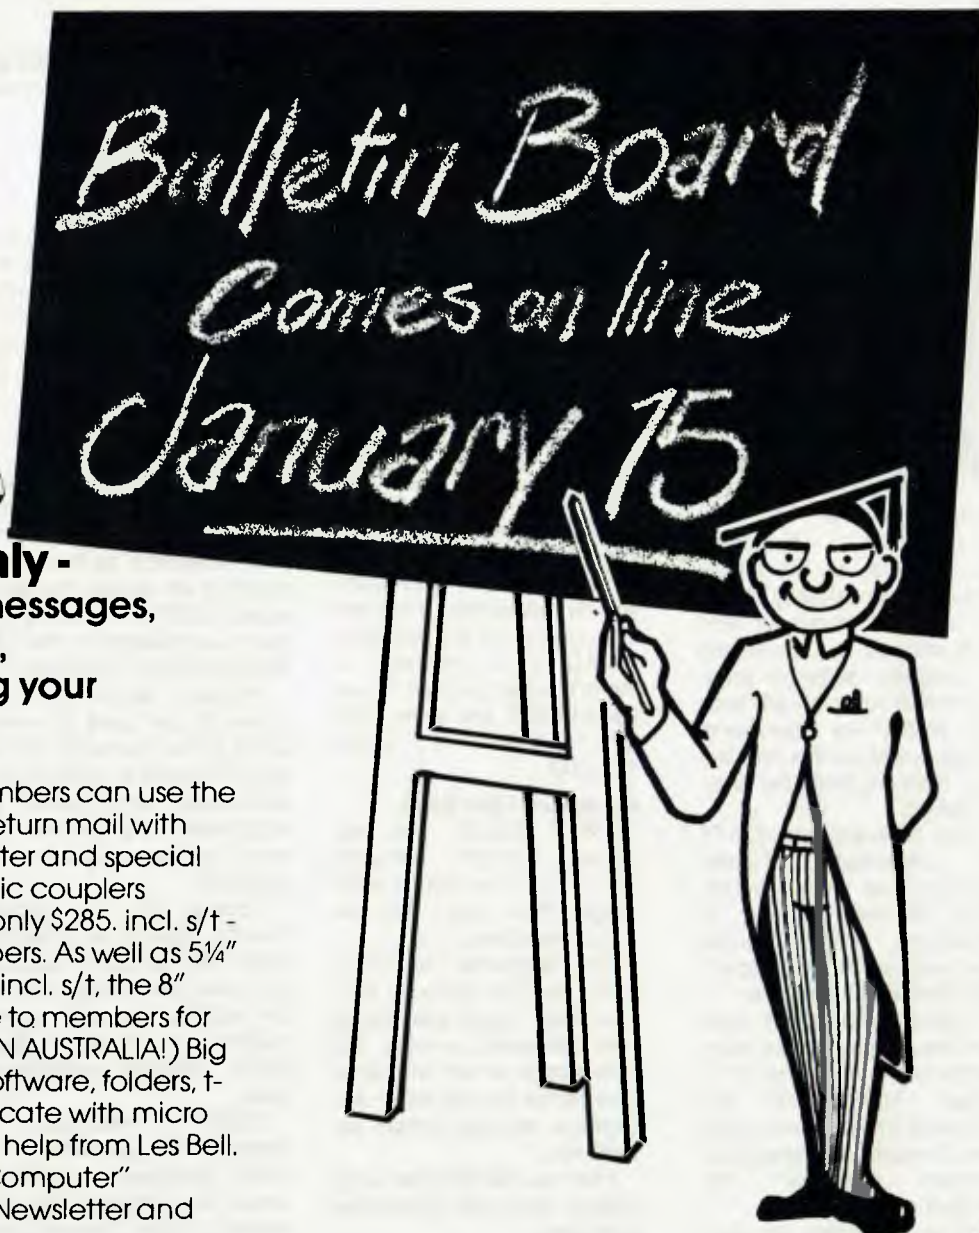 Bulletin Board
Comes on line
January 15
nly -
nessages,
,
g your
mbers can use the
eturn mail with
ter and special
ic couplers
only $285. incl. s/t -
pers. As well as 5¼"
incl. s/t, the 8"
e to members for
N AUSTRALIA!) Big
oftware, folders, t-
cate with micro
help from Les Bell.
Computer"
Newsletter and